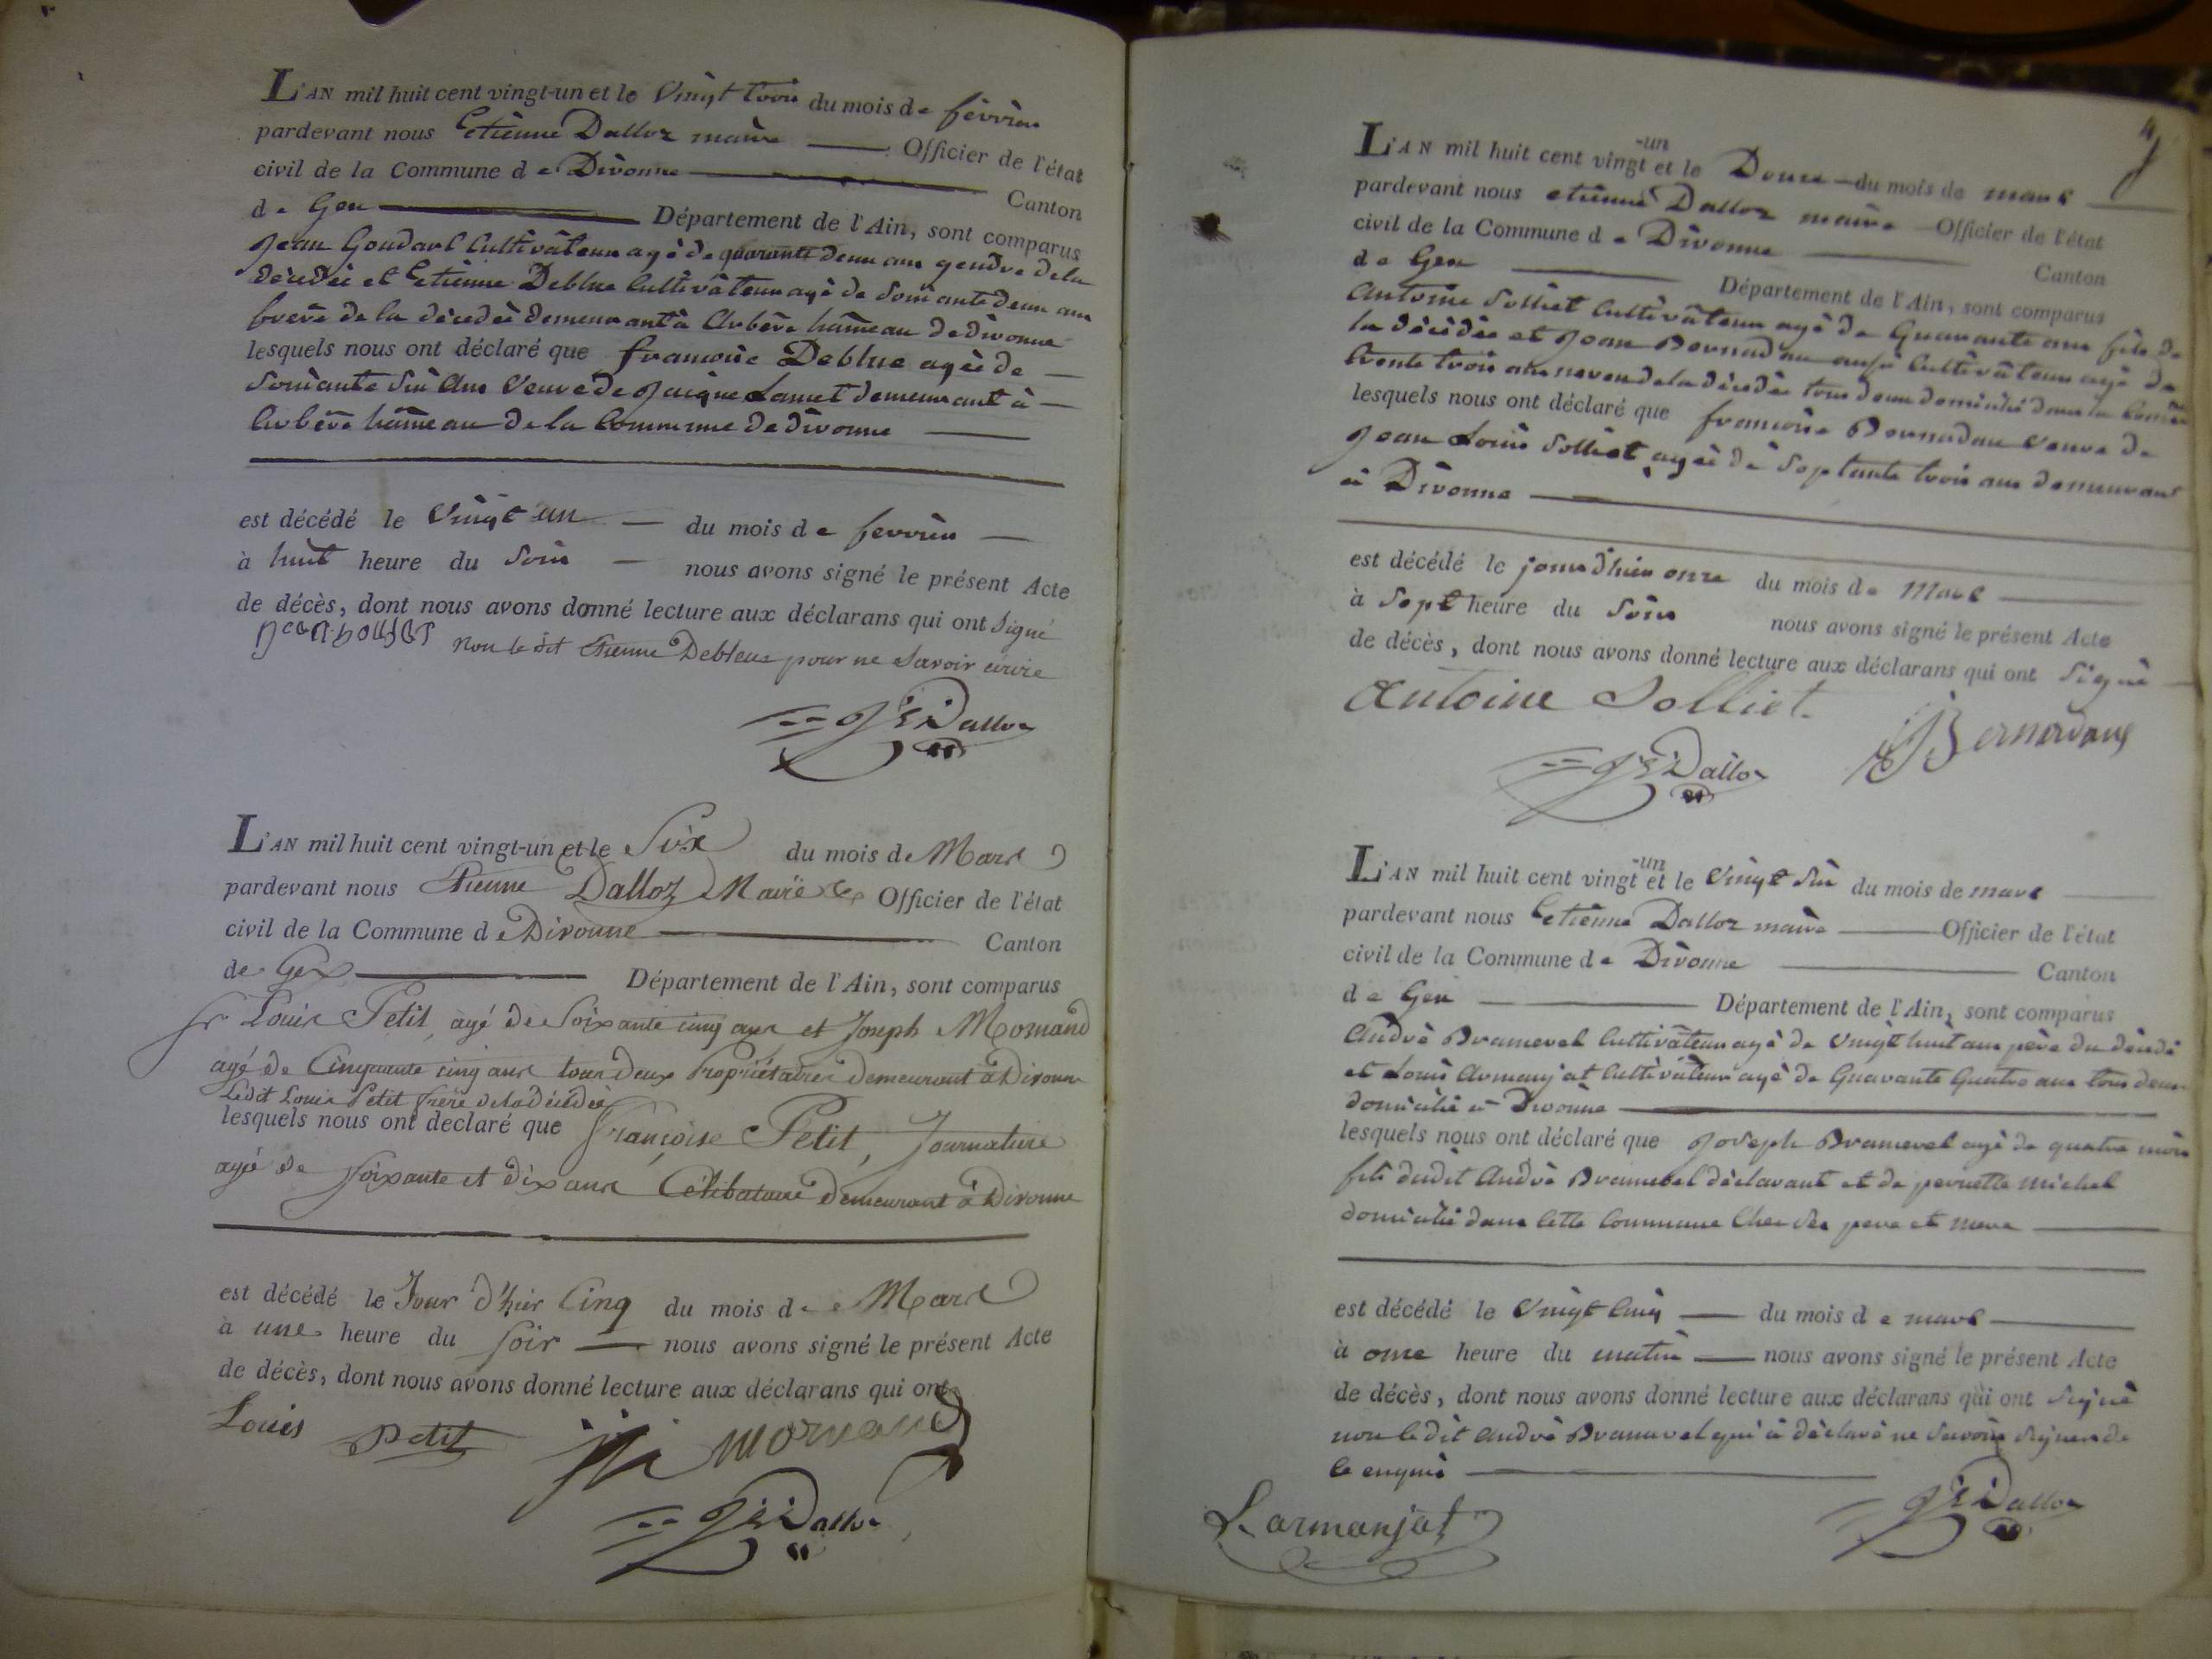 L'AN mil huit cent vingt-un et le vingt trois du mois de fevrier
pardevant nous Etienne Dalloz maire Officier de l'état
civil de la Commune de Divonne Canton
de Gex Département de l'Ain, sont comparus
Jean Goudard Cultivateur agé de quarante deux ans gendre de la
décédée et Etienne Deblue Cultivateur agé de soixante deux ans
frere de la décédée demeurant à Arbère hameau de divonne
lesquels nous ont déclaré que francoise Deblue agée de
soixante six ans Veuve de Jaique Lamet demeurant à
Arbère hâmeau de la Commune de divonne
est décédé le vingt un du mois de fevrier
à huit heure du soir nous avons signé le présent Acte
de décès, dont nous avons donné lecture aux déclarans qui ont signé
non le dit Etienne Deblue pour ne savoir écrire
Dalloz
L'AN mil huit cent vingt-un et le Six du mois de Mars
pardevant nous Etienne Dalloz Maire Officier de l'état
civil de la Commune de Divonne Canton
de Gex Département de l'Ain, sont comparus
sr Louis Petit, agé de soixante cinq ans et Joseph Mornand
agé de Cinquante cinq ans tous deux Propriétaires demeurant à Divonne
Ledit Louis Petit frère de la décédée
lesquels nous ont declaré que Françoise Petit, Journaliere
agée de soixante et dix ans Célibataire demeurant à Divonne
est décédé le Jour d'hier Cinq du mois de Mars
à une heure du soir nous avons signé le présent Acte
de décès, dont nous avons donné lecture aux déclarans qui ont
Louis Petit mornand
Dalloz
4
L'AN mil huit cent vingt-un et le Douze du mois de mars
pardevant nous etienne Dalloz maire Officier de l'état
civil de la Commune de Divonne Canton
de Gex Département de l'Ain, sont comparus
Antoine Solliet Cultivateur agé de Quarante ans fils de
la décédée et Jean Bernadau aussi Cultivateur agé de
trente trois ans neveu de la décédée tous deux domicilié dans la
lesquels nous ont déclaré que francoise Bernadau veuve de
Jean Louis Solliet agée de Septante trois ans demeurant
à Divonne
est décédé le jour d'hier onze du mois de Mars
à Sept heure du soir nous avons signé le présent Acte
de décès, dont nous avons donné lecture aux déclarans qui ont signé
Antoine Solliet.
Dalloz
L'AN mil huit cent vingt-un et le vingt six du mois de mars
pardevant nous Etienne Dalloz maire Officier de l'état
civil de la Commune de Divonne Canton
de Gex Département de l'Ain, sont comparus
André Bramerel Cultivateur agé de vingt huit ans père du décédé
et Louis Armanjat Cultivateur agé de Quarante Quatre ans tous deux
domicilié à Divonne
lesquels nous ont déclaré que Joseph Bramerel agé de quatre mois
fils dudit André Bramerel déclarant et de pernette michel
domicilié dans cette Commune chez ses pere et mere
est décédé le vingt cinq du mois de mars
à onze heure du matin nous avons signé le présent Acte
de décès, dont nous avons donné lecture aux déclarans qui ont signé
non le dit André Bramerel qui à déclaré ne savoir signer de
ce enquis
L. armanjat
Dalloz